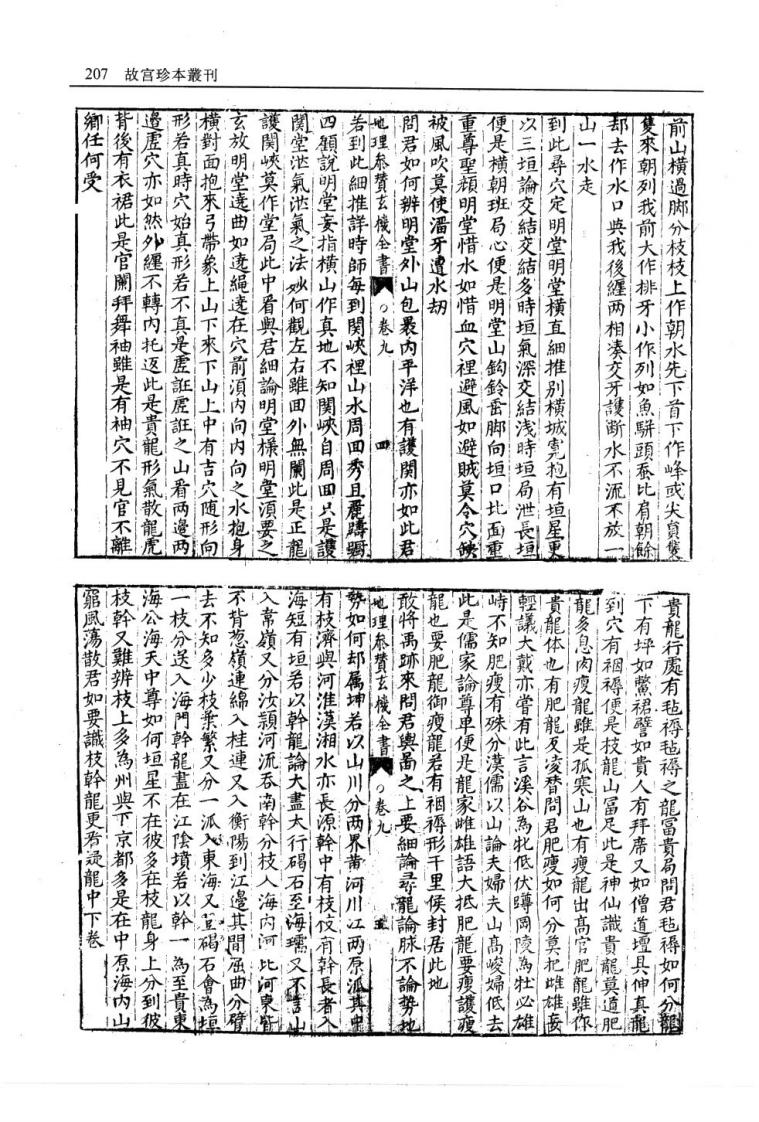 207 故宮珍本叢刊
前山橫過脚分枝枝上作朝水先下首下作峰或尖員隻
隻來朝列我前大作排牙小作列如魚駢頭蚕比肩朝餘
却去作水口與我後纏两相湊交牙護斷水不流不放一
山一水走
到此尋穴定明堂明堂橫直細推別橫城寬抱有垣星更
以三垣論交結交結多時垣氣深交結浅時垣局泄長垣
便是橫朝班局心便是明堂山鈎鈐垂脚向垣口北面重
重尊聖顔明堂惜水如惜血穴裡避風如避賊莫令穴缺
被風吹莫使溜牙遭水刼
問君如何辨明堂外山包裹內平洋也有護関亦如此君
地理叅賛玄機全書 卷九 四
若到此細推詳時師每到関峽裡山水周回秀且麗躊躇
四顧說明堂妄指橫山作真地不知関峽自周回只是護
関堂泄氣泄氣之法妙何觀左右雖回外無闌此是正龍
護関峽莫作堂局此中看與君細論明堂様明堂湏要之
玄放明堂遶曲如遶繩遶在穴前湏內向內向之水抱身
橫對面抱來弓帶象上山下來下山上中有吉穴随形向
形若真時穴始真形若不真是虛誑虛誑之山看两邊两
邊虛穴亦如然外纒不轉內托返此是貴龍形氣散龍虎
背後有衣裙此是官闌拜舞袖雖是有袖穴不見官不離
鄉任何受
貴龍行處有毡褥毡褥之龍冨貴局問君毡褥如何分龍
下有坪如鱉裙譬如貴人有拜席又如僧道壇具伸真龍
到穴有裀褥便是枝龍山冨足此是神仙識貴龍莫道肥
龍多息肉瘦龍雖是孤寒山也有瘦龍出高官肥龍雖作
貴龍体也有肥龍反凌替問君肥瘦如何分莫把雌雄妄
輕議大戴亦嘗有此言溪谷為牝低伏蹲岡陵為牡必雄
峙不知肥瘦有殊分漢儒以山論夫婦夫山高峻婦低去
此是儒家論尊卑便是龍家雌雄語大抵肥龍要瘦護瘦
龍也要肥龍御瘦龍若有裀褥形千里侯封居此地
敢將禹跡來問君輿圖之上要細論尋龍論脉不論勢地
地理叅賛玄機全書 卷九 五
勢如何却属坤若以山川分两界黄河川江两原派其中
有枝濟與河淮漢湘水亦長源幹中有枝枝有幹長者入
海短有垣若以幹龍論大盡太行碣石至海壖又不言山
入常嶺又分汝潁河流吞南幹分枝人海內河北河東皆
不背葱嶺連綿入桂連又入衡陽到江邊其間屈曲分臂
去不知多少枝葉繁又分一派入東海又登碣石會為垣
一枝分送入海門幹龍盡在江陰墳若以幹一為至貴東
海公海天中尊如何垣星不在彼多在枝龍身上分到彼
枝幹又難辨枝上多為州與下京都多是在中原海內山
窮風蕩散君如要識枝幹龍更看疑龍中下卷